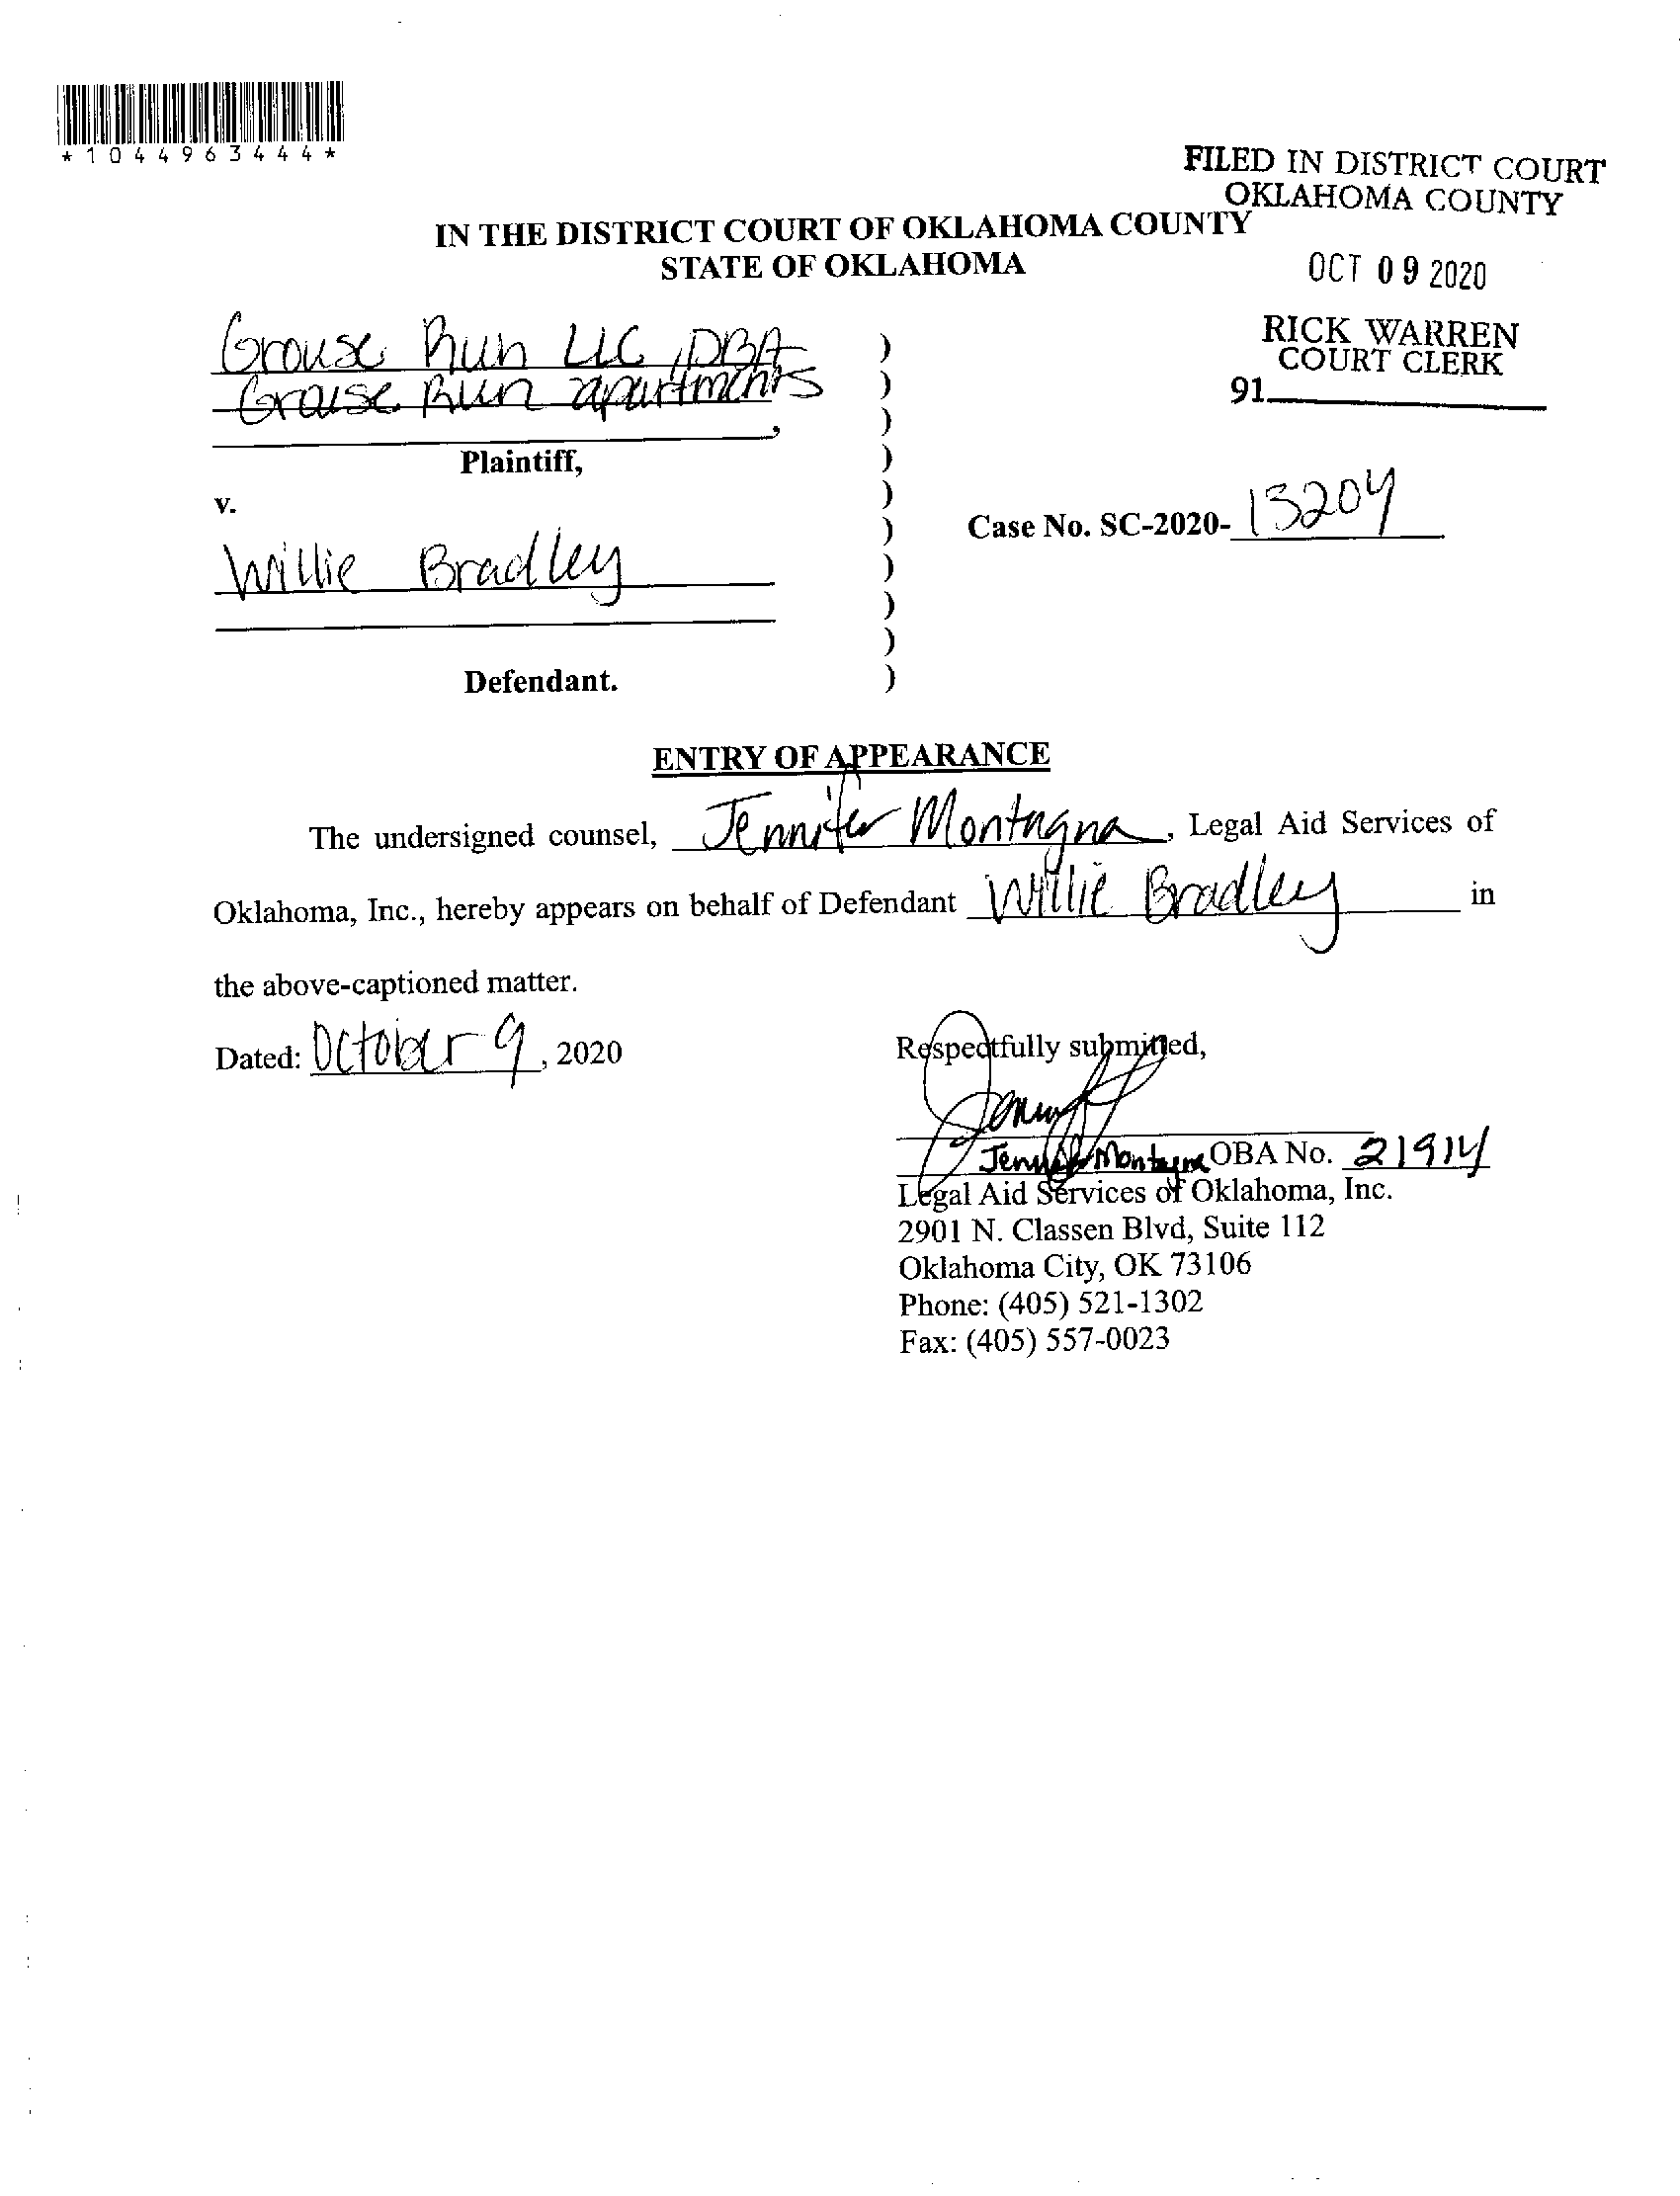 *1044963444*
FILED IN DISTRICT COURT
OKLAHOMA COUNTY
IN THE DISTRICT COURT OF OKLAHOMA COUNTY
STATE OF OKLAHOMA
OCT 09 2020
RICK WARREN
COURT CLERK
91
Grouse Run LLC, DBA )
Grouse Run apartments )
, )
Plaintiff, )
v. )
Case No. SC-2020- 13204 )
Willie Bradley )
)
)
Defendant. )
ENTRY OF APPEARANCE
The undersigned counsel, Jennifer Montagna, Legal Aid Services of
Oklahoma, Inc., hereby appears on behalf of Defendant Willie Bradley in
the above-captioned matter.
Dated: October 9, 2020
Respectfully submitted,
Jennifer Montagna OBA No. 21914
Legal Aid Services of Oklahoma, Inc.
2901 N. Classen Blvd, Suite 112
Oklahoma City, OK 73106
Phone: (405) 521-1302
Fax: (405) 557-0023